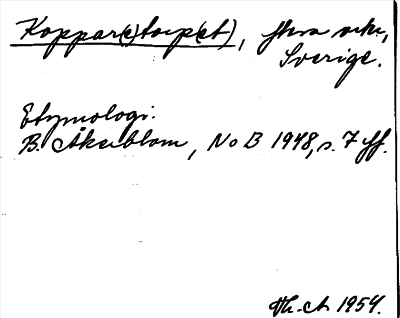 Koppar(e)torp(et), flera orter,
Sverige.
Etymologi:
B. Åkerblom, NoB 1948, s. 7 ff.
Th.-ch 1954.